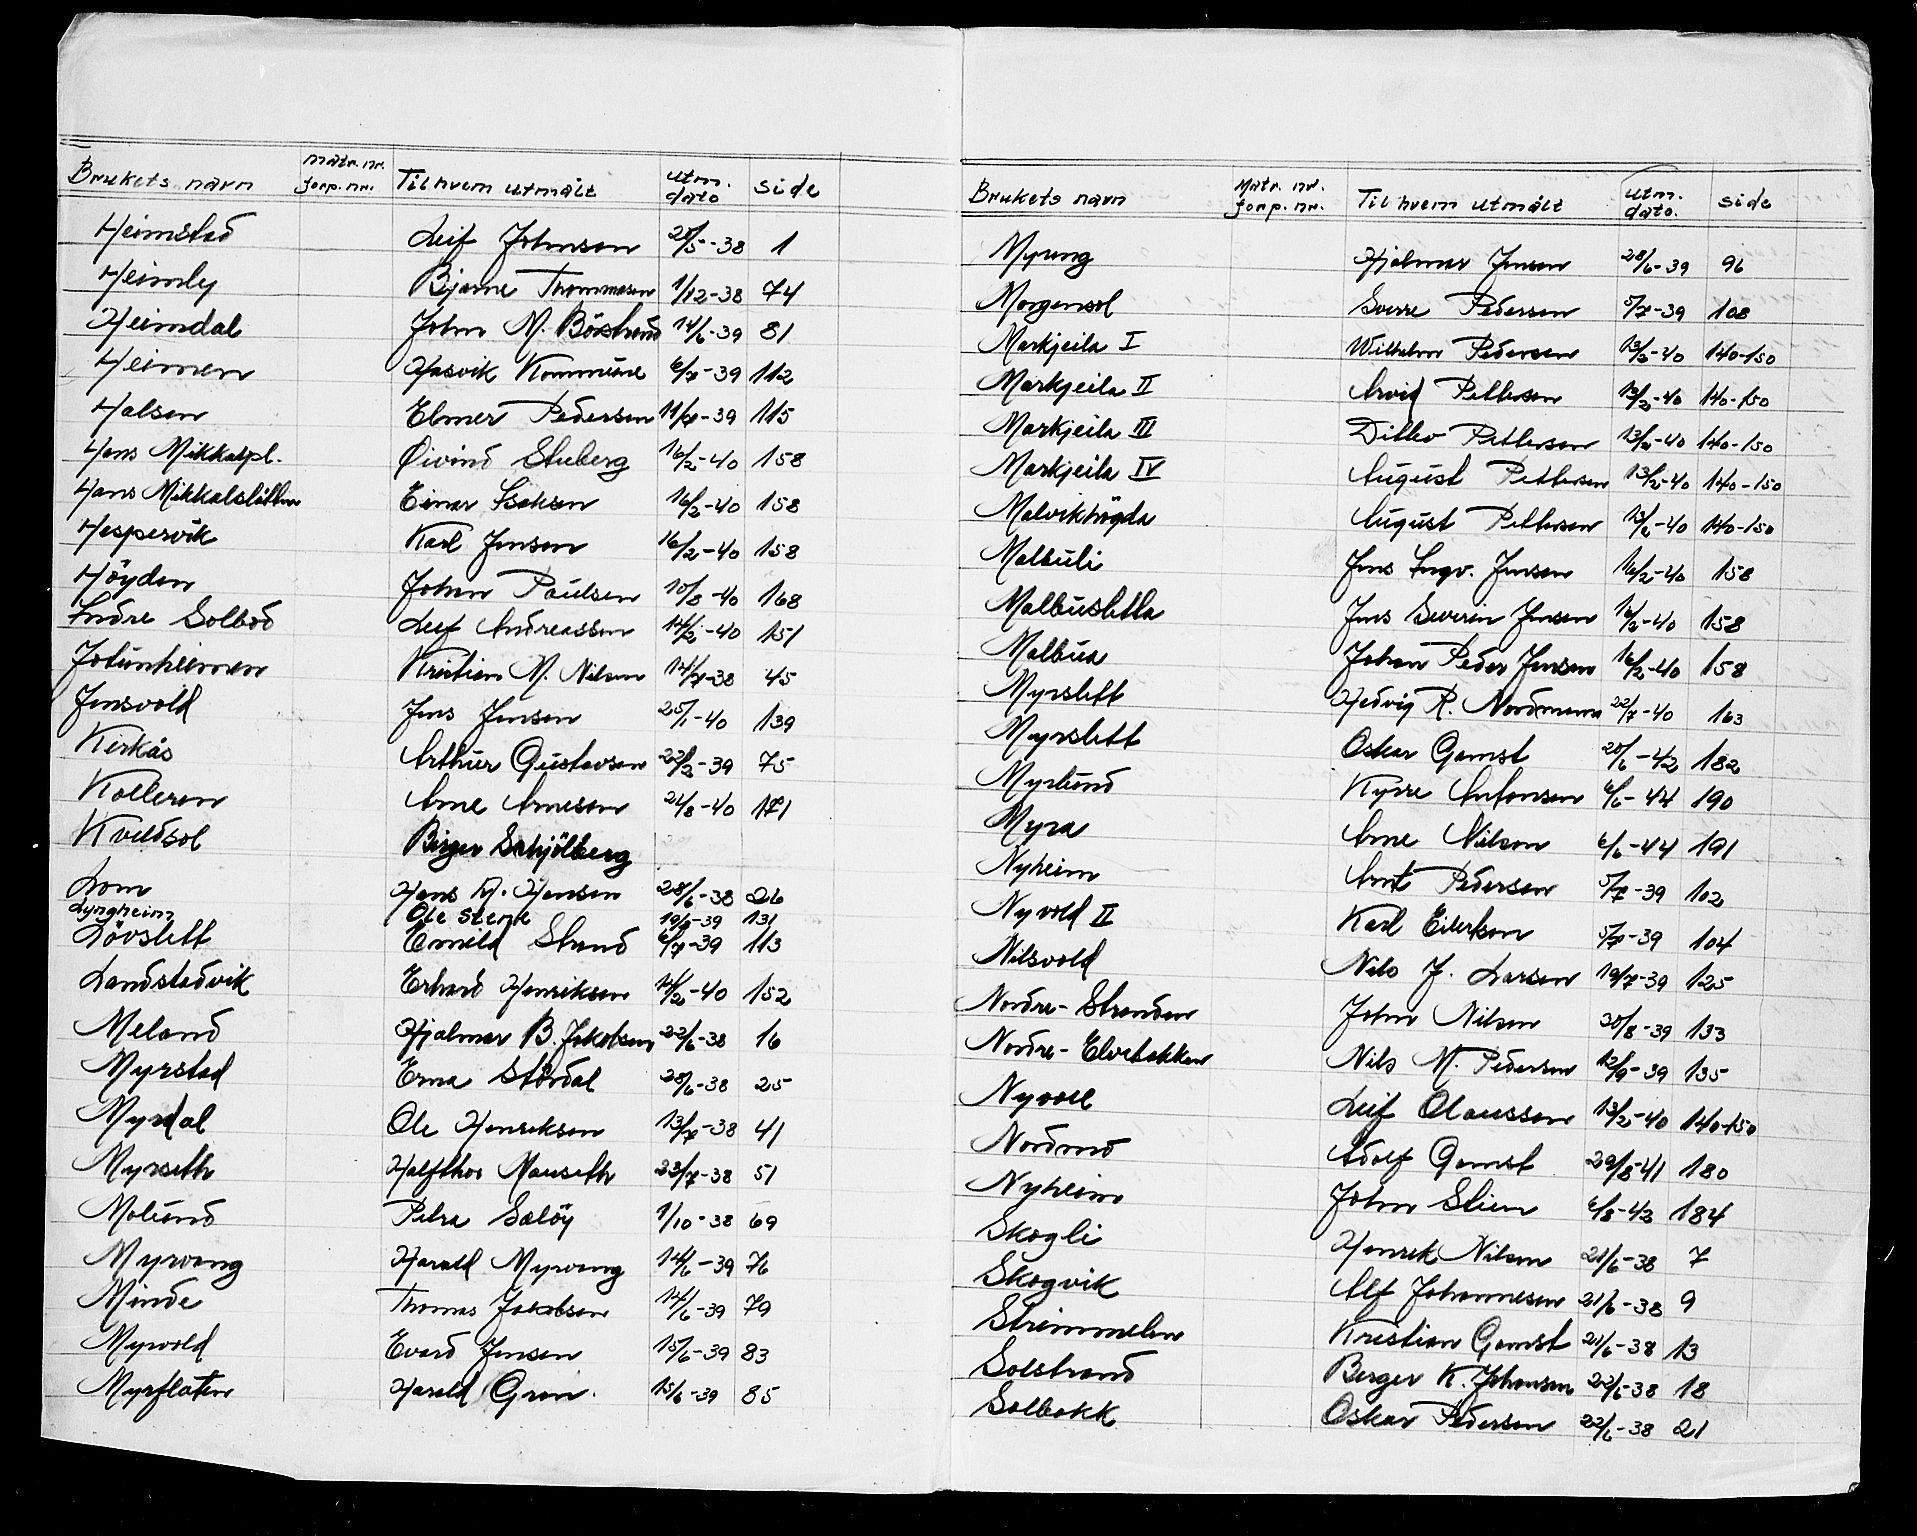 Brukets navn Matr. nr. forp. nr. Til hvem utmålt utm. dato side
Heimstad Leif Johnsen 21/5-38 1
Heimly Bjarne Thommesen 1/12-38 74
Heimdal John M. Börstrand 14/6-39 81
Heimen Hasvik Kommune 6/7-39 112
Halsen Elmer Pedersen 11/7-39 115
Hans Mikkalpl. Øivind Stuberg 16/2-40 158
Hans Mikkalsletten Einar Isaksen 16/2-40 158
Hespervik Karl Jensen 16/2-40 158
Höyden Johan Paulsen 10/8-40 168
Indre Solbod Leif Andreassen 14/2-40 151
Jotunheimen Kristian M. Nilsen 14/7-38 45
Jensvold Jens Jensen 25/1-40 139
Kirkås Arthur Gustavsen 22/2-39 75
Kolleren Arne Arnesen 21/8-40 171
Kveldsol Birger Schjölberg
Lom Hans A. Hansen 28/6-38 26
Lyngheim Ole Stene 19/8-39 131
Lövslett Emeld Strand 6/7-39 113
Landstadvik Erhard Henriksen 14/2-40 152
Meland Hjalmar B. Jakobsen 22/6-38 16
Myrstad Erna Stördal 28/6-38 25
Myrdal Ole Henriksen 13/7-38 41
Myrseth Halfthor Mauseth 23/7-38 51
Molund Petra Salöy 1/10-38 69
Myrvang Harald Myrvang 14/6-39 76
Minde Thomas Jacobsen 14/6-39 79
Myrvold Evard Jensen 15/6-39 83
Myrflaten Harald Gran. 15/6-39 85
Brukets navn Matr. nr. forp. nr. Til hvem utmålt utm. dato. side
Myreng Hjalmar Jensen 28/6-39 96
Morgensol Sverre Pedersen 5/7-39 108
Markjeila I Wilhelm Pedersen 13/2-40 140-150
Markjeila II Arvid Pettersen 13/2-40 140-150
Markjeila III Ditlev Pettersen 13/2-40 140-150
Markjeila IV August Pettersen 13/2-40 140-150
Malvikhögda August Pettersen 13/2-40 140-150
Malbuli Jens Ingv. Jensen 16/2-40 158
Malbusletta Jens Severin Jensen 16/2-40 158
Malbua Johan Peder Jensen 16/2-40 158
Myrslett Hedvig R. Nordmann 22/7-40 163
Myrslett Oskar Gamst 20/6-42 182
Myrlund Kyrre Antonsen 6/6-44 190
Myra Arne Nilsen 6/6-44 191
Nyheim Arnt Pedersen 5/7-39 102
Nyvold II Karl Eilertsen 5/7-39 104
Nilsvold Nils J. Larsen 19/7-39 125
Nordre-Stranden John Nilsen 30/8-39 133
Nordre-Elvebakken Nils M. Pedersen 12/9-39 135
Nyvoll Leif Olaussen 13/2-40 140-150
Nordmo Adolf Gamst 29/8-41 180
Nyheim John Stien 6/8-42 184
Skogli Henrik Nilsen 21/6-38 7
Skogvik Alf Johannesen 21/6-38 9
Strimmelen Kristian Gamst 21/6-38 13
Solstrand Berger K. Johansen 22/6-38 18
Solbakk Oskar Pedersen 22/6-38 21